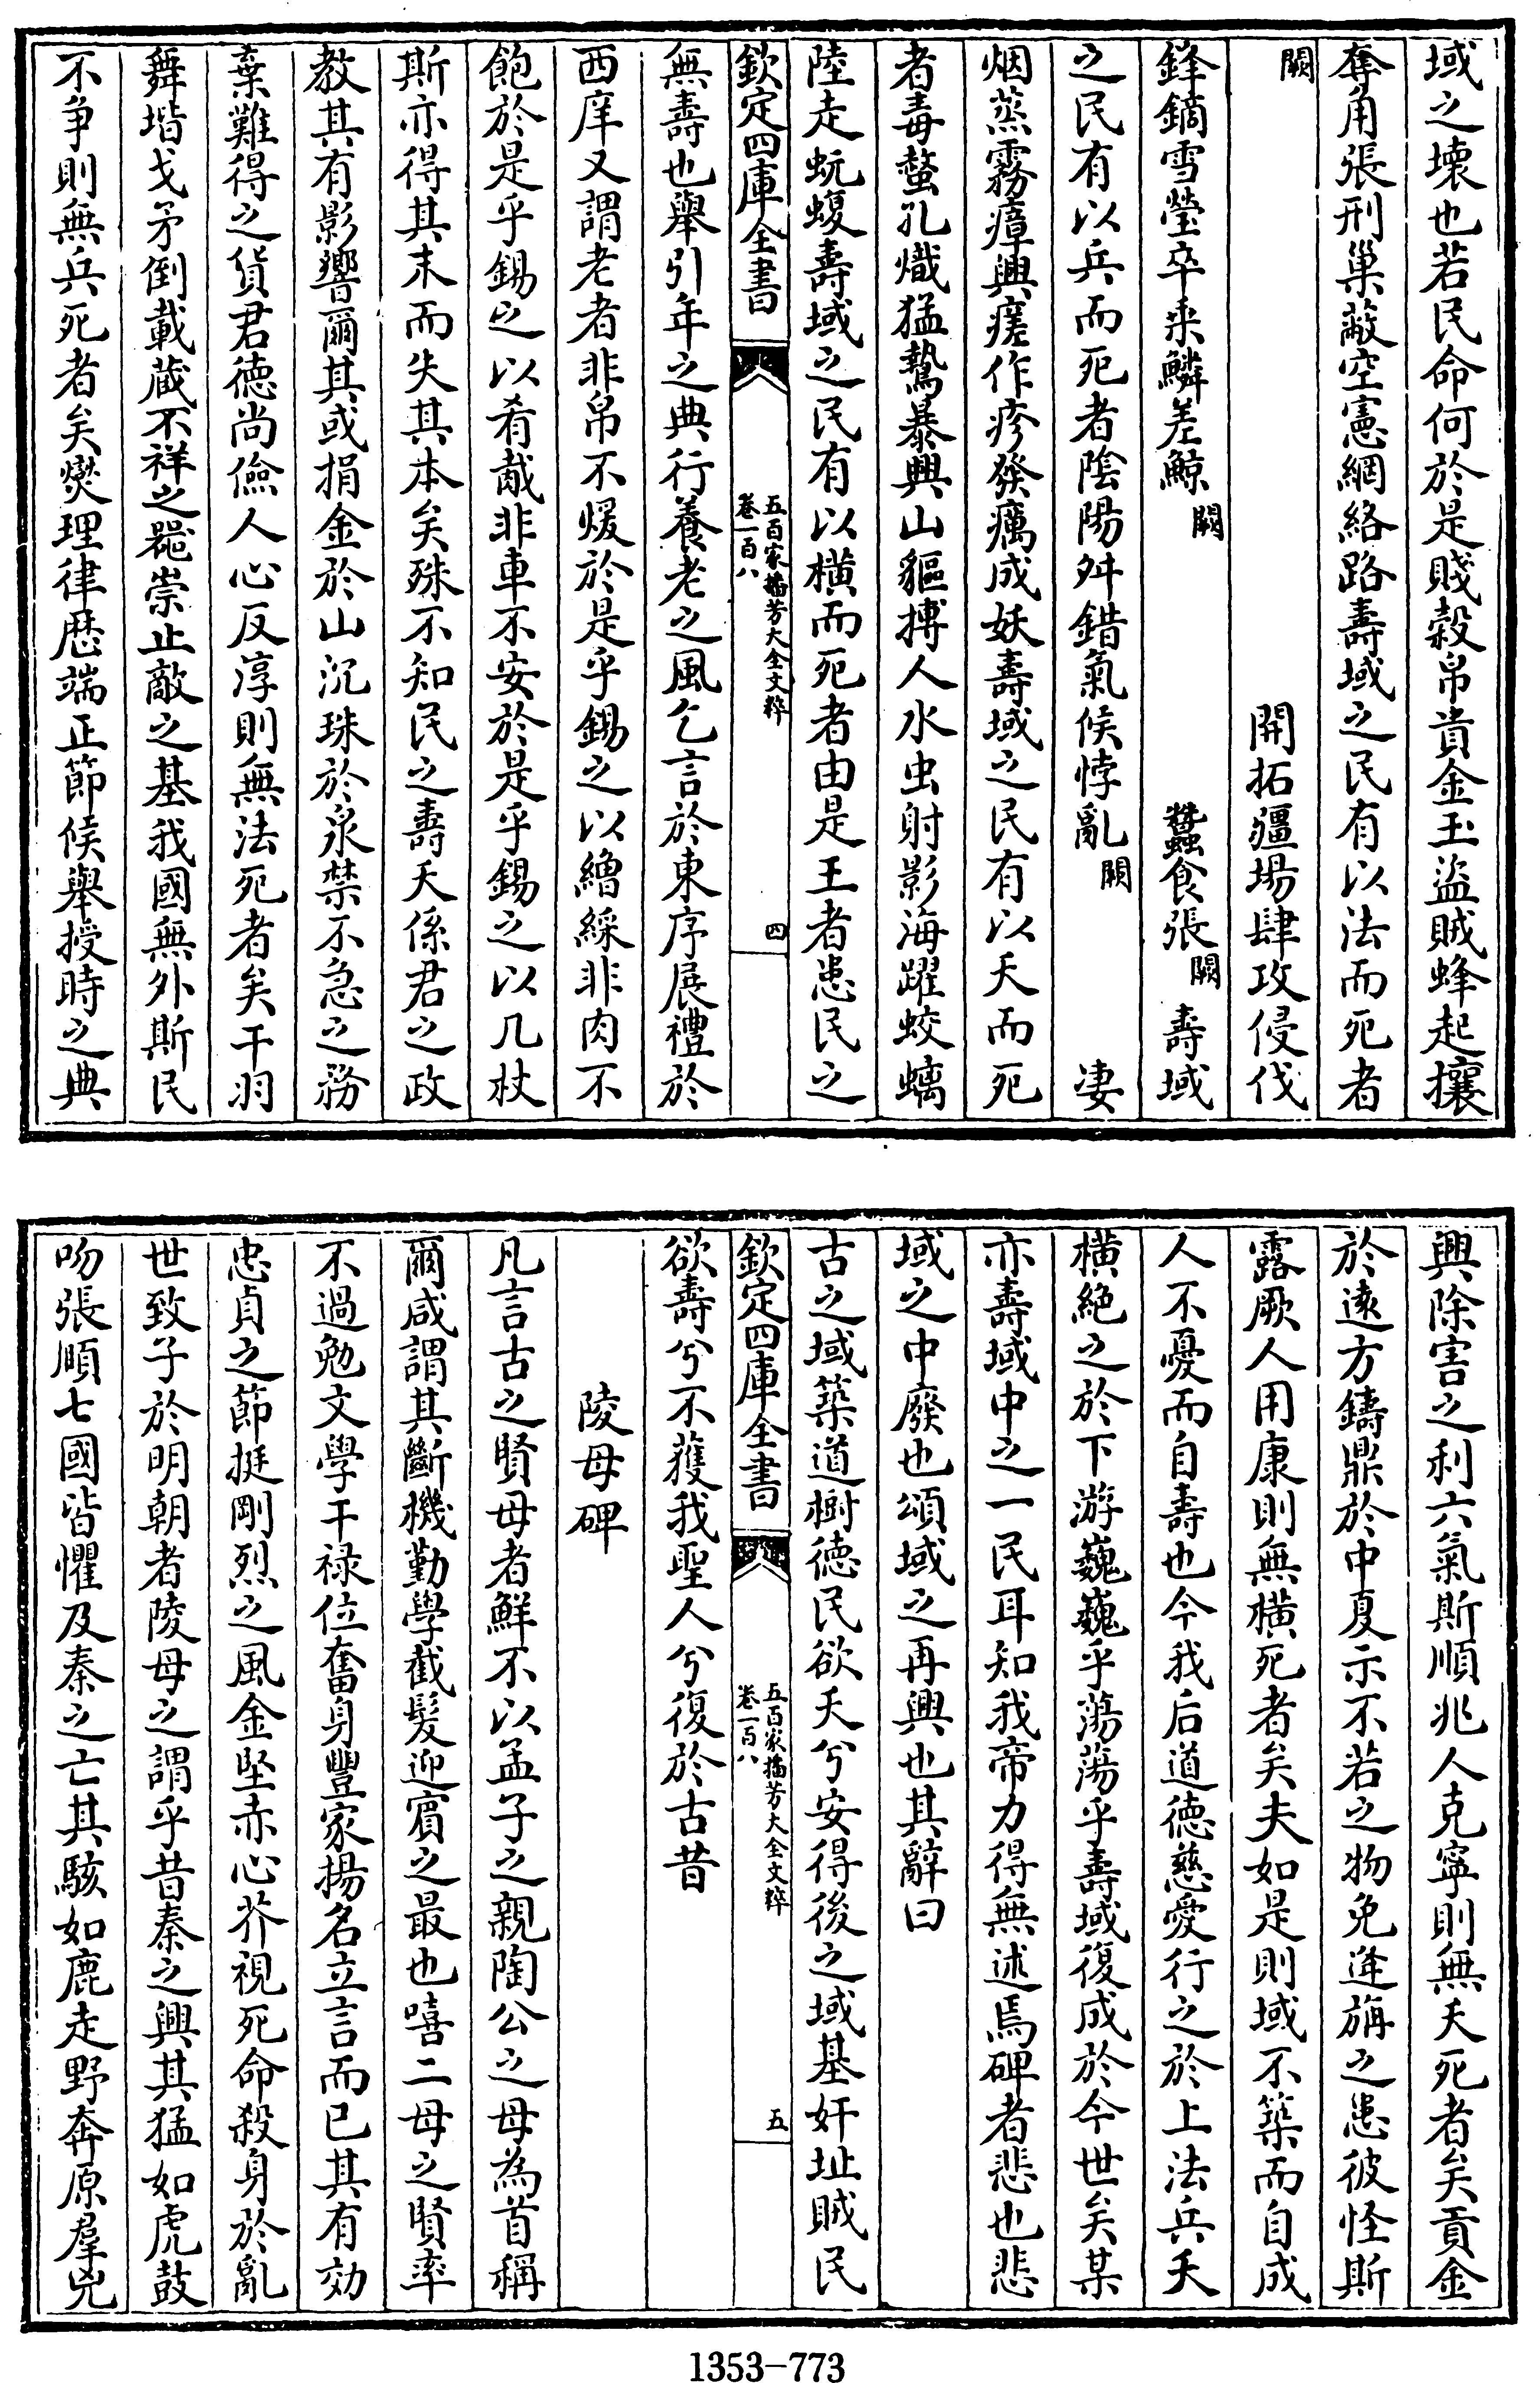 域之壊也若民命何於是賤穀帛貴金玉盜賊蜂起攘
奪角張刑巢蔽空憲網絡路壽域之民有以法而死者
闕　開拓疆場肆攻侵伐
鋒鏑雪瑩卒乘鱗差鯨闕　蠶食張闕　壽域
之民有以兵而死者陰陽舛錯氣候悖亂闕　凄
烟蒸霧瘴興瘥作疹發癘成妖壽域之民有以夭而死
者毒螫孔熾猛鷙暴興山貙搏人水虫射影海躍蛟螭
陸走蚖蝮壽域之民有以横而死者由是王者患民之
欽定四庫全書　五百家播芳大全文粹 卷一百八　四
無壽也舉引年之典行養老之風乞言於東序展禮於
西庠又謂老者非帛不煖於是乎錫之以繒綵非肉不
飽於是乎錫之以肴胾非車不安於是乎錫之以几杖
斯亦得其末而失其本矣殊不知民之壽夭係君之政
教其有影響爾其或捐金於山沉珠於泉禁不急之務
棄難得之貨君徳尚儉人心反淳則無法死者矣干羽
舞堦戈矛倒載蔵不祥之器崇止敵之基我國無外斯民
不争則無兵死者矣爕理律歴端正節候舉授時之典
興除害之利六氣斯順兆人克寧則無夭死者矣貢金
於遠方鑄鼎於中夏示不若之物免逢旃之患彼怪斯
露厥人用康則無横死者矣夫如是則域不築而自成
人不憂而自壽也今我后道徳慈愛行之於上法兵夭
横絶之於下游巍巍乎蕩蕩乎壽域復成於今世矣某
亦壽域中之一民耳知我帝力得無述焉碑者悲也悲
域之中廢也頌域之再興也其辭曰
古之域築道樹徳民欲夭兮安得後之域基奸址賊民
欽定四庫全書　五百家播芳大全文粹 卷一百八　五
欲壽兮不獲我聖人兮復於古昔
陵母碑
凡言古之賢母者鮮不以孟子之親陶公之母為首稱
爾咸謂其斷機勤學截髮迎賓之最也嘻二母之賢率
不過勉文學干禄位奮身豐家揚名立言而已其有効
忠貞之節挺剛烈之風金堅赤心芥視死命殺身於亂
世致子於明朝者陵母之謂乎昔秦之興其猛如虎鼓
吻張頤七國皆懼及秦之亡其駭如鹿走野奔原羣兇
1353-773